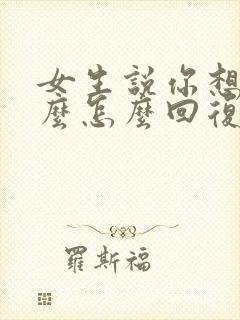 女生説你想
麼怎麼回復
羅斯福